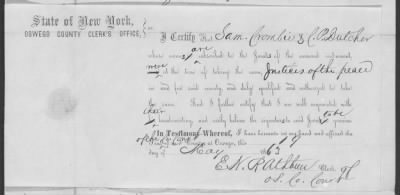 State of New York,
OSWEGO COUNTY CLERK'S OFFICE, ss.
I Certify that Sam. Crombie & C. P. Dutcher
are
whose names subscribed to the Jurats of the annexed instrument,
were at the time of taking the same Justices of the peace
in and for said county, duly qualified and authorized to take
the same. And I further certify that I am well acquainted with
their handwriting, and verily believe the signatures and Jurats to be genuine.
In Testimony Whereof, I have hereunto set my hand and affixed the
of the Co. Court at Oswego, this 19
day of May 1863
E. N. Rathbun Clerk of
Os. Co. Court